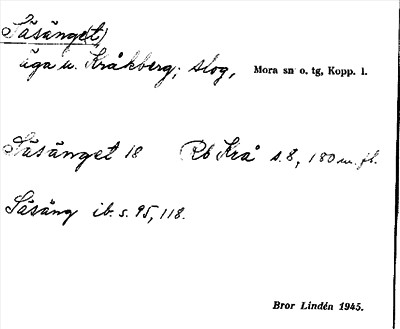 Säsänget(et)
äga u. Kråkberg; slog, Mora sn o. tg, Kopp. l.
Säsänget 18 Rb Krå s. 8, 180 m. fl.
Säsäng ib. s. 95, 118.
Bror Lindén 1945.